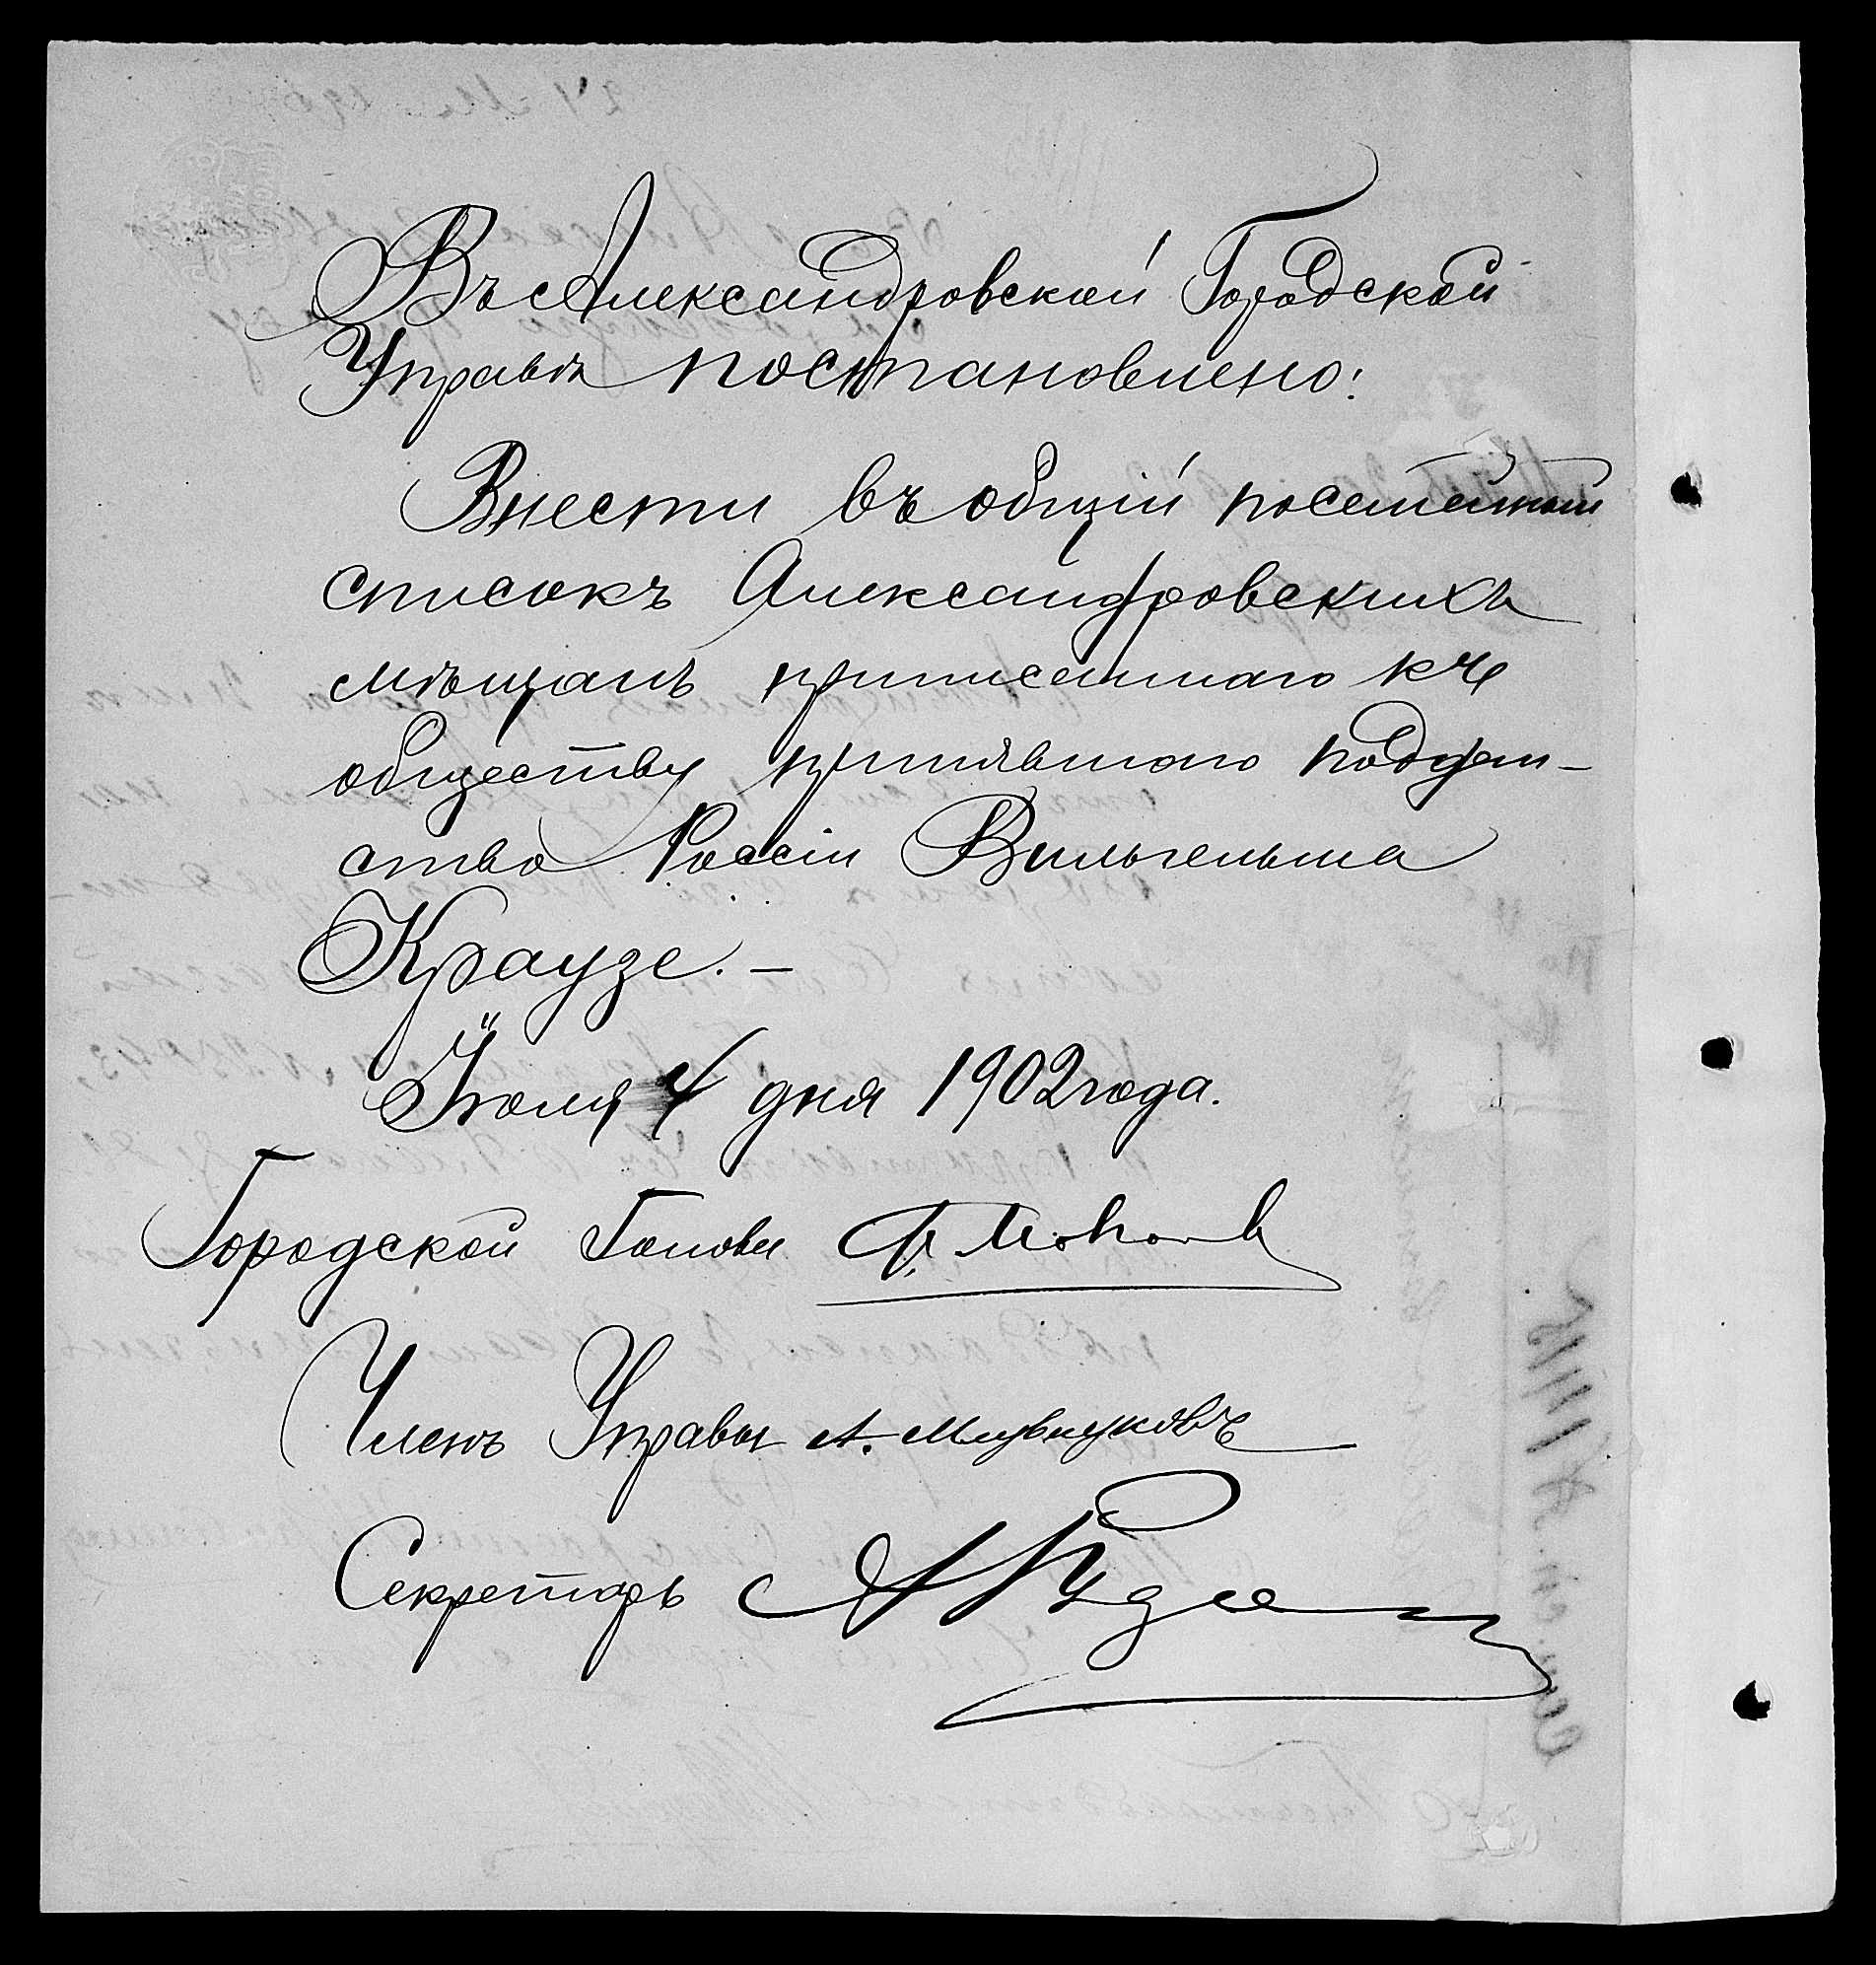 Въ Александровской Городской
Управѣ постановлено:
Внести въ общій посемейный
списокъ Александровскихъ
мѣщанъ приписаннаго къ
обществу принявшаго поддан-
ство Россіи Вильгельма
Краузе. —
Іюля 4 дня 1902 года.
Городской Голова Ф.
Членъ Управы А.
Секретарь